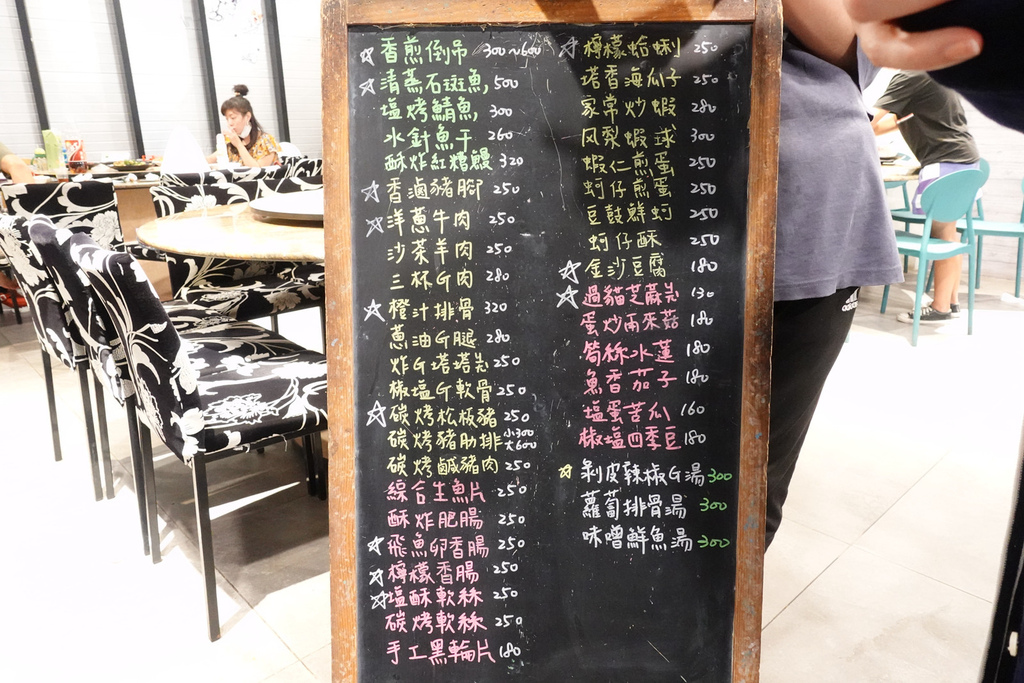 ☆香煎倒吊 300~600
☆清蒸石斑魚 500
塩烤鯖魚 300
水針魚干 260
酥炸紅糟鰻 320
☆香滷豬腳 250
☆洋蔥牛肉 250
沙茶羊肉 250
三杯G肉 280
☆橙汁排骨 320
蔥油G腿 280
炸G塔塔羔 250
椒塩G軟骨 250
☆碳烤松板豬 250
碳烤豬肋排 小300 大600
碳烤鹹豬肉 250
綜合生魚片 250
酥炸肥腸 250
☆飛魚卵香腸 250
☆檸檬香腸 250
☆塩酥軟絲 250
碳烤軟絲 250
手工黑輪片 180
☆檸檬蛤蜊 250
塔香海瓜子 250
家常炒蝦 280
凤梨蝦球 300
蝦仁煎蛋 250
蚵仔煎蛋 250
豆鼓鮮蚵 250
蚵仔酥 250
☆金沙豆腐 180
☆過貓芝麻羔 130
蛋炒雨來菇 180
筍絲水蓮 180
魚香茄子 180
塩蛋苦瓜 160
椒塩四季豆 180
☆剝皮辣椒G湯 300
蘿蔔排骨湯 300
味噌鮮魚湯 300
adidas